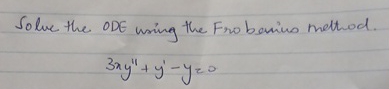 Solve the ODE using the Frobenius method.
3xy'' + y' - y = 0